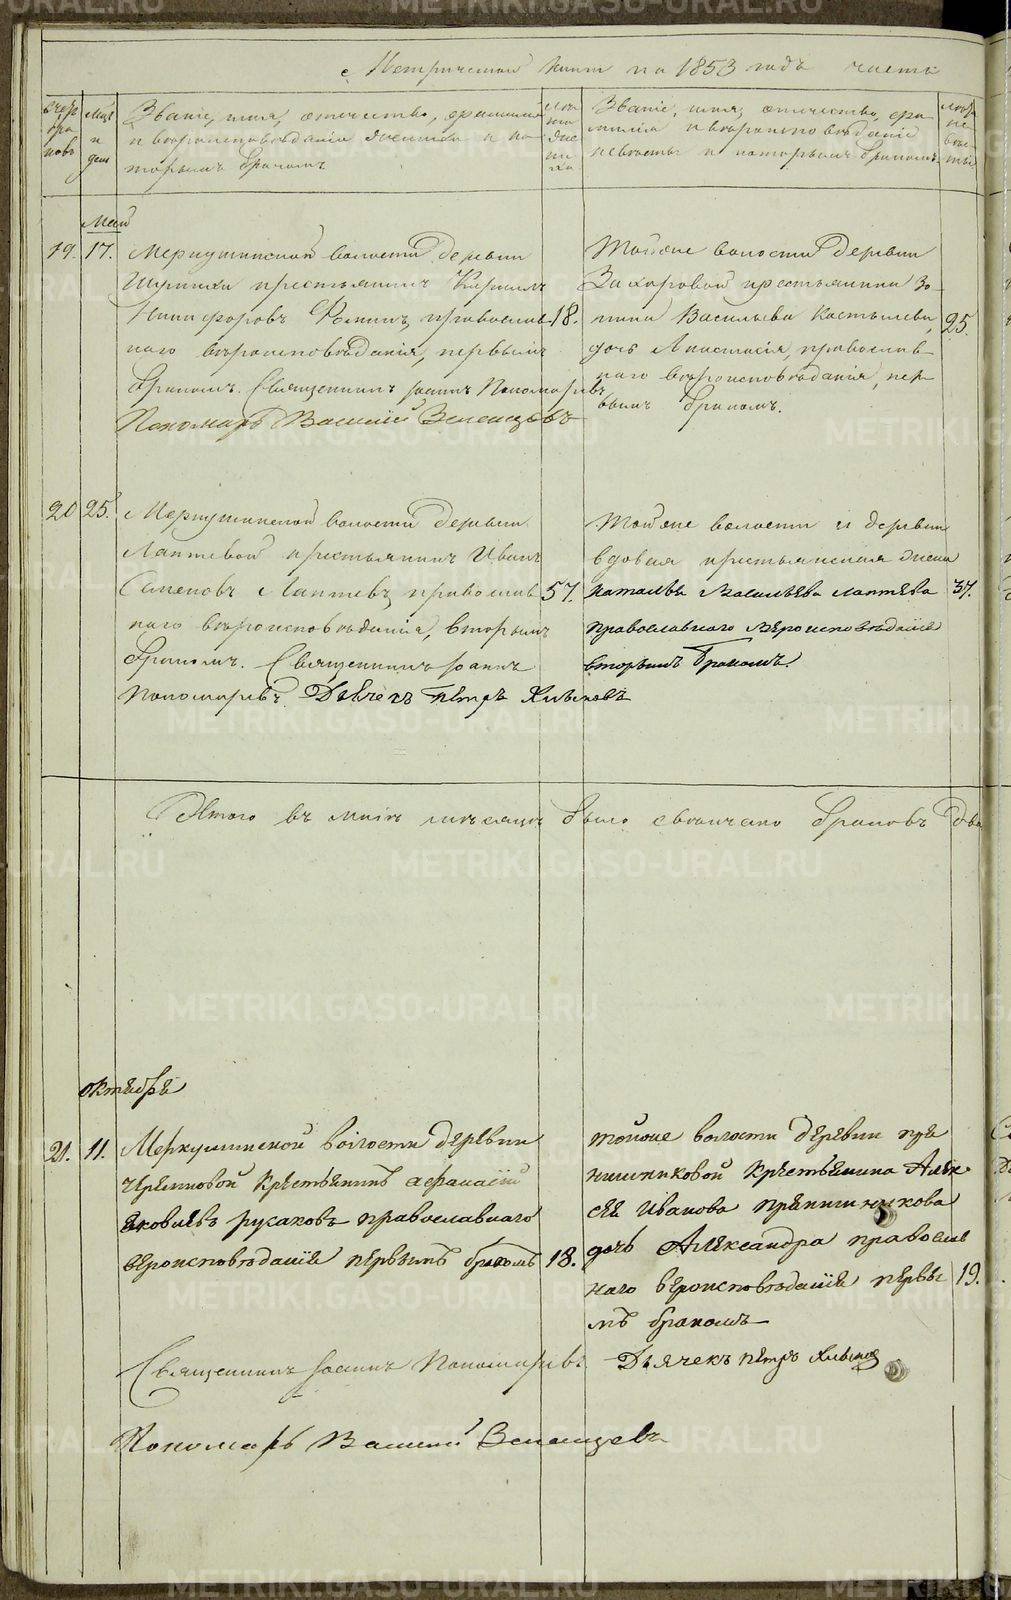 Метрической книги на 1853 годъ часть
Счетъ браковъ
Мѣс. и день
Званіе, имя, отчество, фамилія
и вѣроисповѣданіе жениха и ко
торымъ бракомъ
Лѣта жениха
Званіе, имя, отчество, фа
милія и вѣроисповѣданіе
невѣсты и которымъ бракомъ
Лѣта невѣсты
Май
19. 17. Меркушинской волости деревни
крестьянинъ Кирилъ
Никифоровъ Фоминъ, православ 18.
наго вѣроисповѣданія, первымъ
бракомъ. Священникъ Іоаннъ Пономаревъ
Пономарь Василій Зеленцовъ
Тойже волости деревни
Захаровой крестьянина Зо
тика Васильева Костылева, 25.
дочь Анастасія, православ
наго вѣроисповѣданія, пер
вымъ бракомъ.
20 25. Меркушинской волости деревни
Лаптевой крестьянинъ Иванъ
Семеновъ Лаптевъ, православ 57.
наго вѣроисповѣданія, вторымъ
бракомъ. Священникъ Іоаннъ
Пономаревъ. Дьячекъ Петръ Хлыновъ
Тойже волости и деревни
вдовая крестьянская жена
Наталья Васильева Лаптева 37.
православнаго вѣроисповѣданія
вторымъ бракомъ.
Итого въ маіѣ мѣсяцѣ было свѣнчано браковъ два
октября
21. 11. Меркушинской волости деревни
крестьянинъ Афанасій
Яковлевъ Русаковъ православнаго
вѣроисповѣданія первымъ бракомъ 18.
тойже волости деревни пря
нишниковой крестьянина Алек
сѣя Иванова Прянишникова
дочь Александра православ
наго вѣроисповѣданія первы 19.
мъ бракомъ
Священникъ Іоаннъ Пономаревъ Дьячекъ Петръ Хлыновъ
Пономарь Василій Зеленцовъ
METRIKI.GASO-URAL.RU